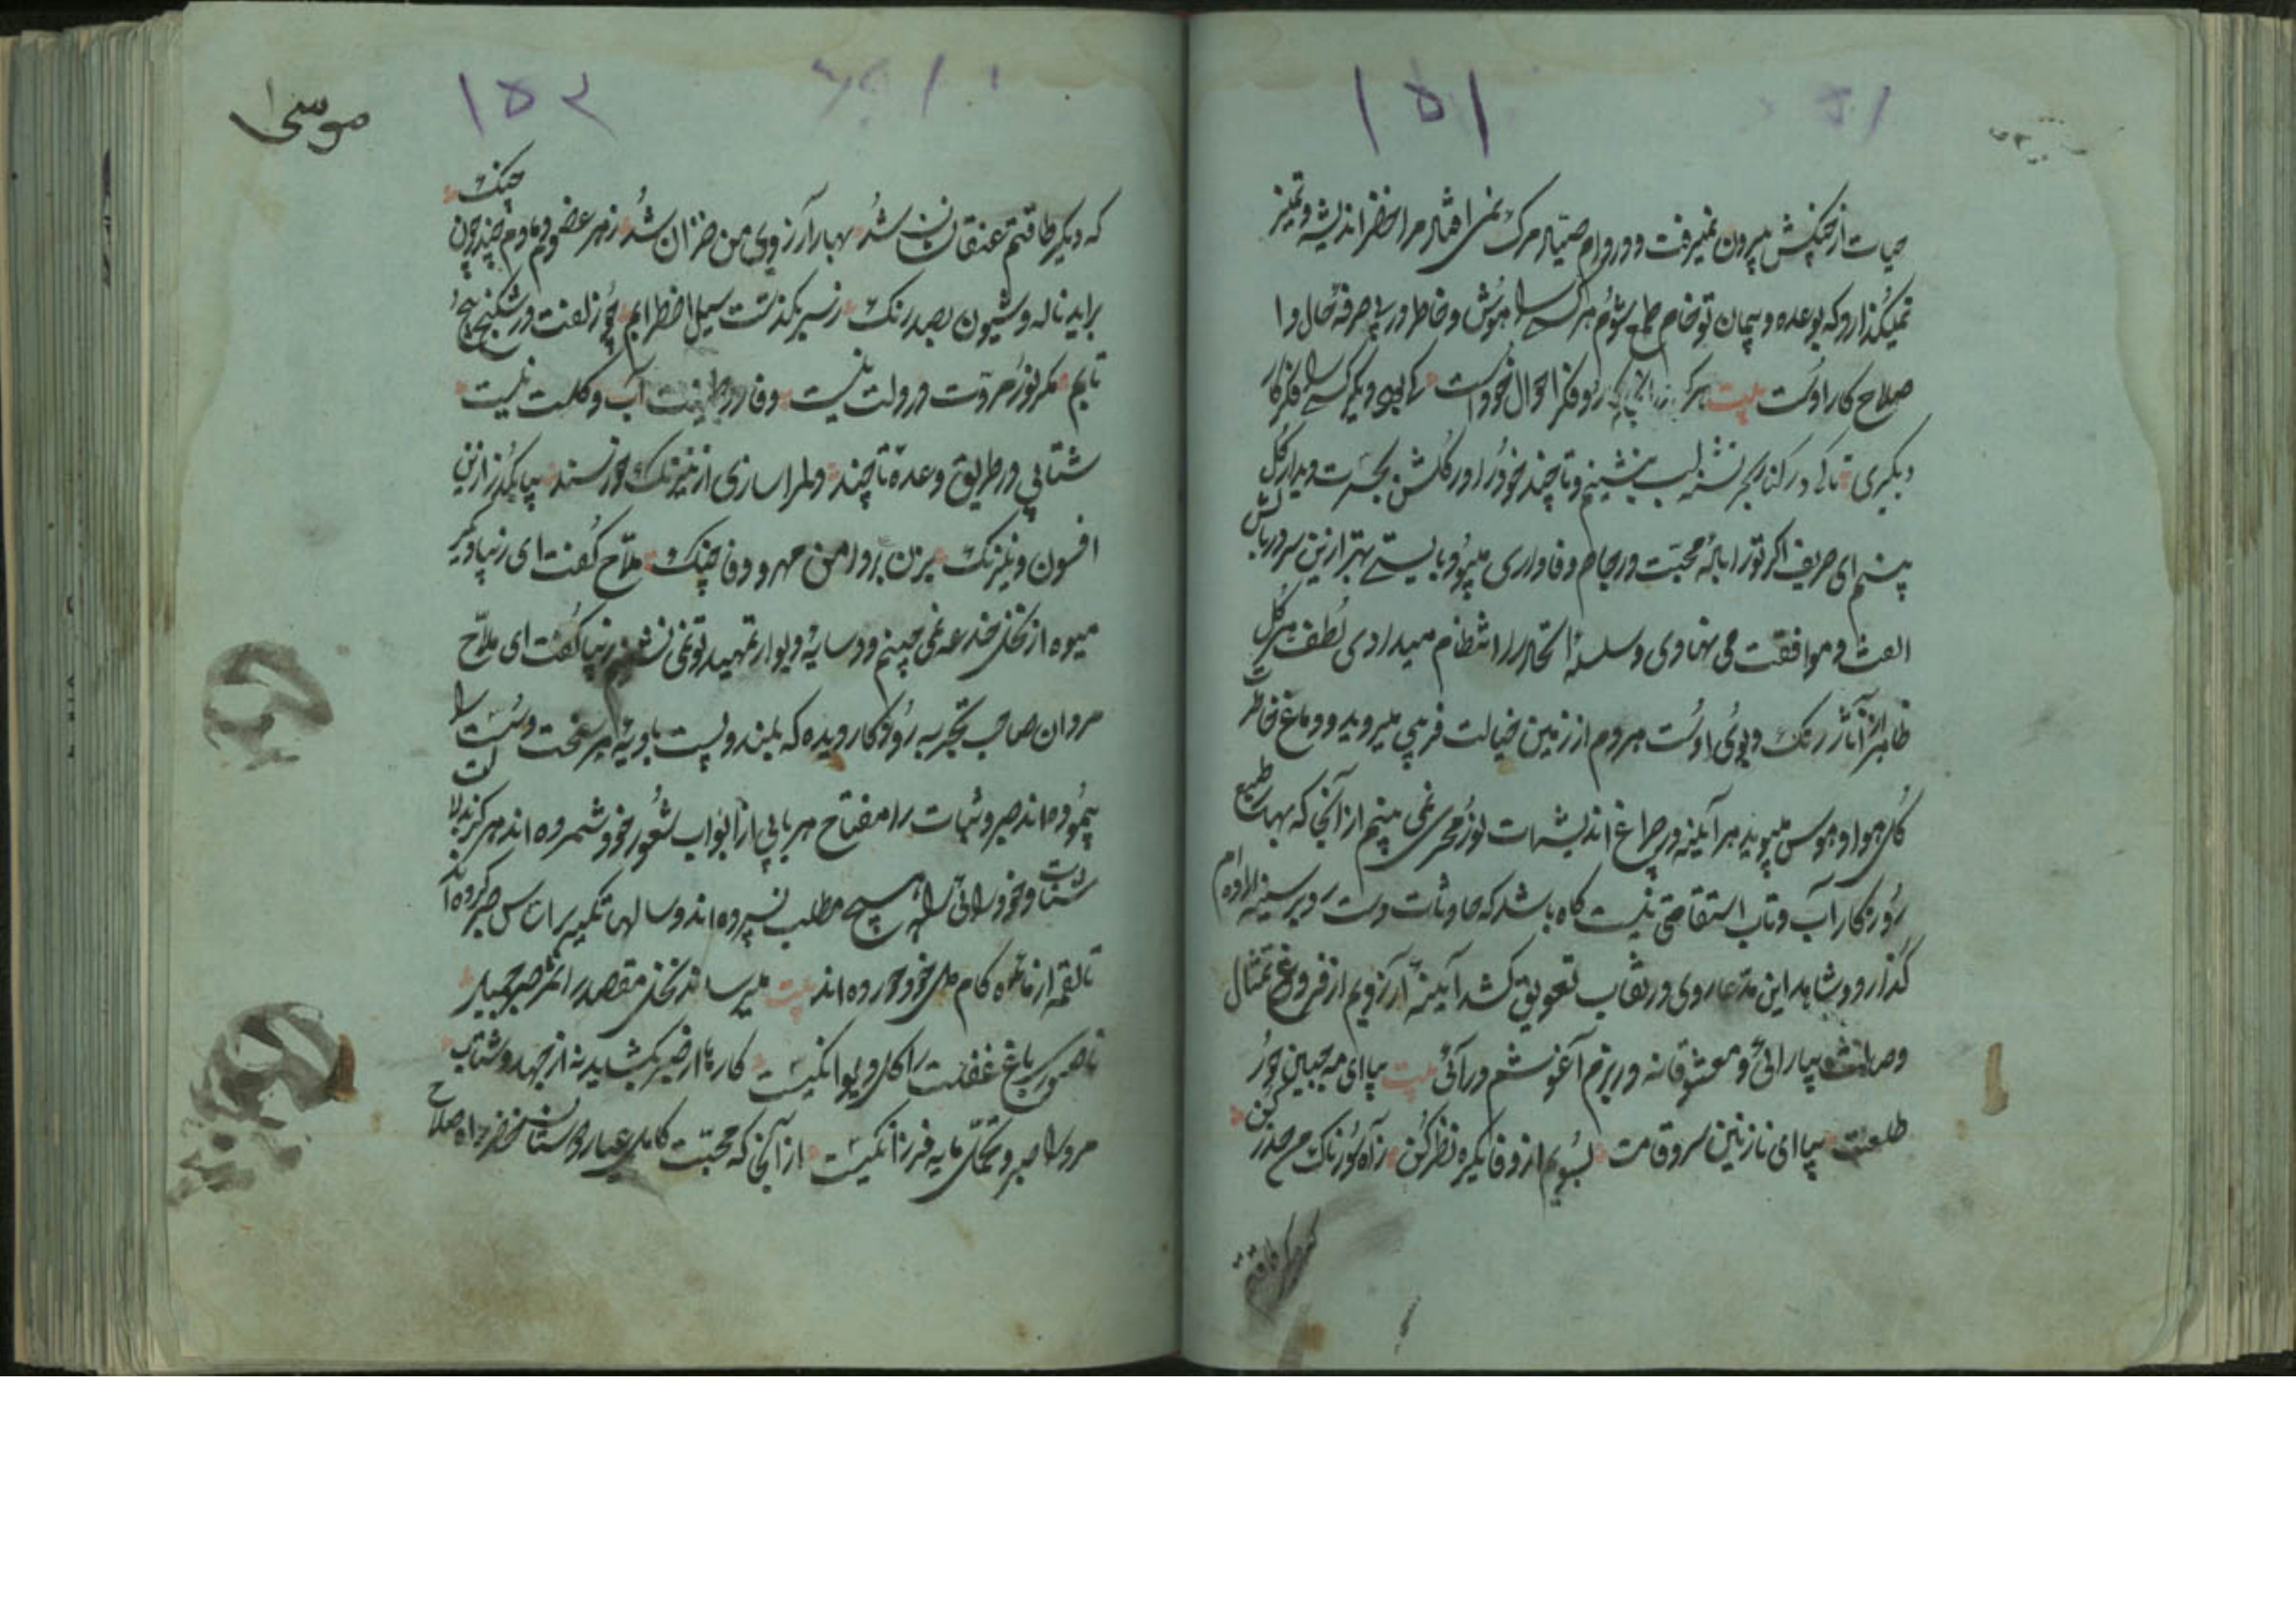 ۱۵۱
حیات از چنگش بیرون نمیرفت و در دام صیاد مرگ نمی افتاد مرا خضر اندیشه و تمیز
نمیگذارد که بوعده و پیمان تو خام طمع شوم هر کسی را هوش و خاطر در پی صرفه حال و ا
صلاح کار اوست بیت هر که فکر احوال خود است کی بود دیگر کسی را فکر کار
دیگری تا کی در کنار بحر تشنه لب بنشینم و تا چند خود را در گلشن بحسرت دیدار گل
پسندم ای حریف اگر ترا باده محبت در جام وفاداری میبود بایستی بهتر ازین سر در بالش
الفت و موافقت می نهادی و سلسله اتحاد را انتظام میدادی لطف هر گل
ظاهر از آثار رنگ و بوی اوست هردم از زمین خیالت فریبی میروید و دماغ خاطرت
گل هوا و هوس میبوید هر آینه در چراغ اندیشهات نور محرمی نمی بینم از آنجا که بهار طبع
روزگار آب و تاب استقامتی نیست گاه باشد که حادثات دست رد بر سینه مرادم
گذارد و شاهد این مدعا روی در نقاب تعویق کشد آیینه آرزویم از فروغ تمثال
وصالت بیارائی و معشوقانه در بزم آغوشم درآئی بیت بیا ای مه جبین حور
طلعت بیا ای نازنین سرو قامت بسویم از وفا یکره نظر کن ز آه سوزناک من حذر کن
که دیگر طاقتم
۱۵۲
موسی
که دیگر طاقتم عنقا نشان شد بهار آرزوی من خزان شد ز هر عضوم دمادم چند چون چنگ
براید ناله و شیون بصد رنگ ز سر بگذشت سیل اضطرابم چو زلفت در شکنج پیچ
تابم مگر نور مروت در دلت نیست وفا در طینت آب و گلت نیست
شتابی در طریق وعده تا چند دلم را سازی از نیرنگ خورسند بیا بگذر ازین
افسون و نیرنگ بزن بر دامن مهر و وفا چنگ ملاح گفت ای زیبا دگر
میوه از نخل خدعه نمی چینم و در سایه دیوار تمهید تو نمی نشینم زیبا گفت ای ملاح
مردان صاحب تجربه روزگار دیده که بلند و پست بادیه هر سخت و سست را
پیموده اند صبر و ثبات را مفتاح هر بابی از ابواب شعور خود شمرده اند هرگز بدلالت
شتاب خود را بی تامل بهیچ مطلب نسپرده اند و سالها تکیه بر اساس صبر کرده اند
تا لقمه از مائده کام دل خود خورده اند بیت میرساند نخل مقصد را ثمر صبر جمیل
ناصبوری باغ غفلت را گل دیوانگیست کارها از صبر بکشاید نه از جهد و شتاب
مرد را صبر و تحمل مایه فرزانگیست از آنجا که محبت کامل عیار دوستان خضر راه صلاح